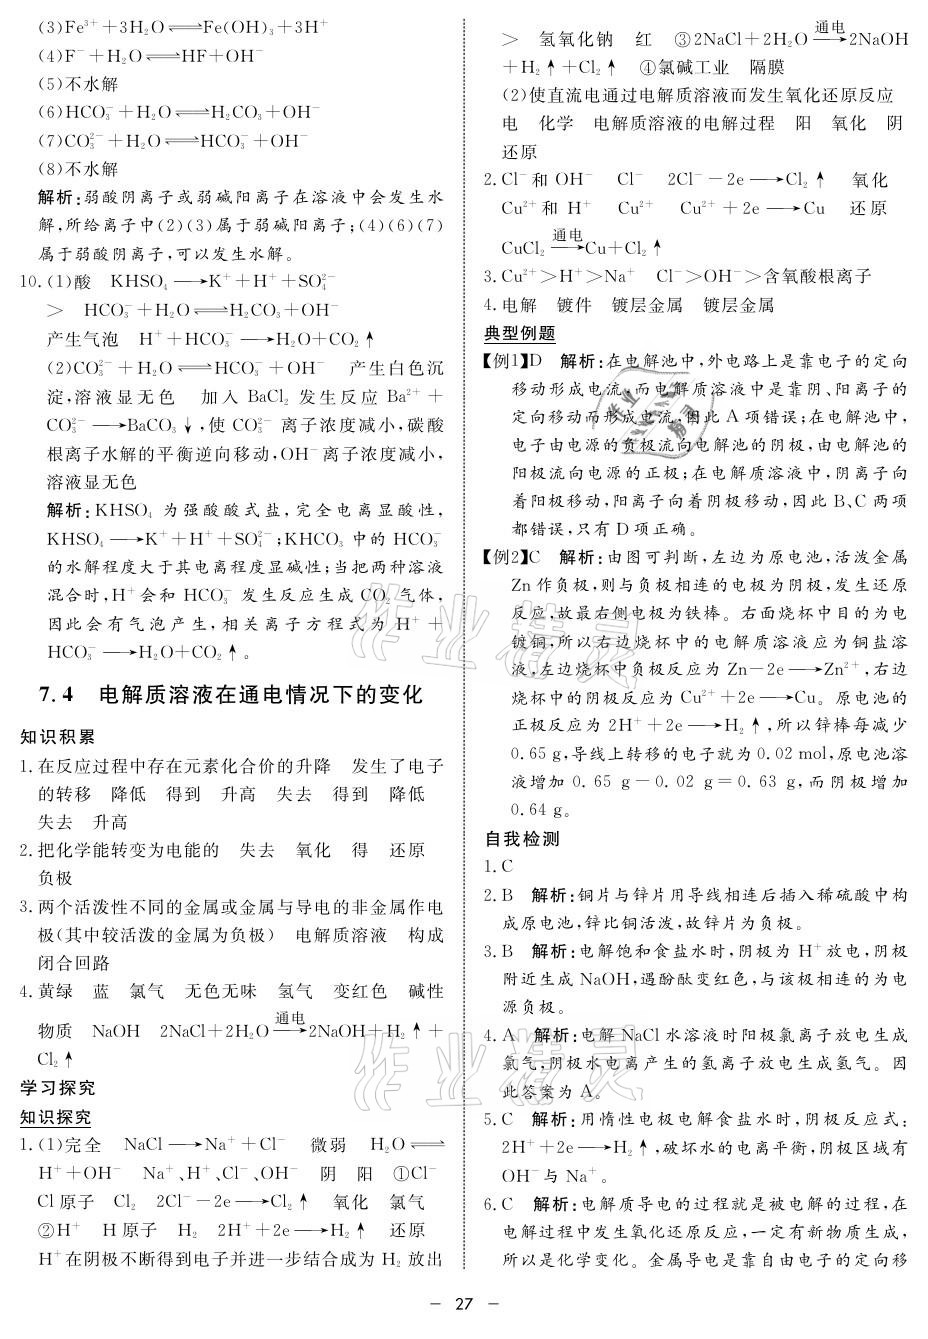 (3)Fe³⁺+3H₂O⇌Fe(OH)₃+3H⁺
(4)F⁻+H₂O⇌HF+OH⁻
(5)不水解
(6)HCO₃⁻+H₂O⇌H₂CO₃+OH⁻
(7)CO₃²⁻+H₂O⇌HCO₃⁻+OH⁻
(8)不水解
解析:弱酸阴离子或弱碱阳离子在溶液中会发生水
解,所给离子中(2)(3)属于弱碱阳离子;(4)(6)(7)
属于弱酸阴离子,可以发生水解。
10.(1)酸 KHSO₄⟶K⁺+H⁺+SO₄²⁻
> HCO₃⁻+H₂O⇌H₂CO₃+OH⁻
产生气泡 H⁺+HCO₃⁻⟶H₂O+CO₂↑
(2)CO₃²⁻+H₂O⇌HCO₃⁻+OH⁻ 产生白色沉
淀,溶液显无色 加入 BaCl₂ 发生反应 Ba²⁺+
CO₃²⁻⟶BaCO₃↓,使 CO₃²⁻ 离子浓度减小,碳酸
根离子水解的平衡逆向移动,OH⁻离子浓度减小,
溶液显无色
解析:KHSO₄ 为强酸酸式盐,完全电离显酸性,
KHSO₄⟶K⁺+H⁺+SO₄²⁻;KHCO₃ 中的 HCO₃⁻
的水解程度大于其电离程度显碱性;当把两种溶液
混合时,H⁺会和 HCO₃⁻ 发生反应生成 CO₂ 气体,
因此会有气泡产生,相关离子方程式为 H⁺+
HCO₃⁻⟶H₂O+CO₂↑。
7.4 电解质溶液在通电情况下的变化
知识积累
1.在反应过程中存在元素化合价的升降 发生了电子
的转移 降低 得到 升高 失去 得到 降低
失去 升高
2.把化学能转变为电能的 失去 氧化 得 还原
负极
3.两个活泼性不同的金属或金属与导电的非金属作电
极(其中较活泼的金属为负极) 电解质溶液 构成
闭合回路
4.黄绿 蓝 氯气 无色无味 氢气 变红色 碱性
物质 NaOH 2NaCl+2H₂O 通电⟶ 2NaOH+H₂↑+
Cl₂↑
学习探究
知识探究
1.(1)完全 NaCl⟶Na⁺+Cl⁻ 微弱 H₂O⇌
H⁺+OH⁻ Na⁺、H⁺、Cl⁻、OH⁻ 阴 阳 ①Cl⁻
Cl原子 Cl₂ 2Cl⁻−2e⟶Cl₂↑ 氧化 氯气
②H⁺ H原子 H₂ 2H⁺+2e⟶H₂↑ 还原
H⁺在阴极不断得到电子并进一步结合成为 H₂ 放出
> 氢氧化钠 红 ③2NaCl+2H₂O 通电⟶ 2NaOH
+H₂↑+Cl₂↑ ④氯碱工业 隔膜
(2)使直流电通过电解质溶液而发生氧化还原反应
电 化学 电解质溶液的电解过程 阳 氧化 阴
还原
2.Cl⁻和 OH⁻ Cl⁻ 2Cl⁻−2e⟶Cl₂↑ 氧化
Cu²⁺和 H⁺ Cu²⁺ Cu²⁺+2e⟶Cu 还原
CuCl₂ 通电⟶ Cu+Cl₂↑
3.Cu²⁺>H⁺>Na⁺ Cl⁻>OH⁻>含氧酸根离子
4.电解 镀件 镀层金属 镀层金属
典型例题
【例1】D 解析:在电解池中,外电路上是靠电子的定向
移动形成电流,而电解质溶液中是靠阴、阳离子的
定向移动而形成电流,因此 A 项错误;在电解池中,
电子由电源的负极流向电解池的阴极,由电解池的
阳极流向电源的正极;在电解质溶液中,阴离子向
着阳极移动,阳离子向着阴极移动,因此 B、C 两项
都错误,只有 D 项正确。
【例2】C 解析:由图可判断,左边为原电池,活泼金属
Zn 作负极,则与负极相连的电极为阴极,发生还原
反应,故最右侧电极为铁棒。右面烧杯中目的为电
镀铜,所以右边烧杯中的电解质溶液应为铜盐溶
液,左边烧杯中负极反应为 Zn−2e⟶Zn²⁺,右边
烧杯中的阴极反应为 Cu²⁺+2e⟶Cu。原电池的
正极反应为 2H⁺+2e⟶H₂↑,所以锌棒每减少
0.65 g,导线上转移的电子就为 0.02 mol,原电池溶
液增加 0.65 g−0.02 g=0.63 g,而阴极增加
0.64 g。
自我检测
1.C
2.B 解析:铜片与锌片用导线相连后插入稀硫酸中构
成原电池,锌比铜活泼,故锌片为负极。
3.B 解析:电解饱和食盐水时,阴极为 H⁺放电,阴极
附近生成 NaOH,遇酚酞变红色,与该极相连的为电
源负极。
4.A 解析:电解 NaCl 水溶液时阳极氯离子放电生成
氯气,阴极水电离产生的氢离子放电生成氢气。因
此答案为 A。
5.C 解析:用惰性电极电解食盐水时,阴极反应式:
2H⁺+2e⟶H₂↑,破坏水的电离平衡,阴极区域有
OH⁻与 Na⁺。
6.C 解析:电解质导电的过程就是被电解的过程,在
电解过程中发生氧化还原反应,一定有新物质生成,
所以是化学变化。金属导电是靠自由电子的定向移
作业精灵
作业精灵
作业精灵
− 27 −